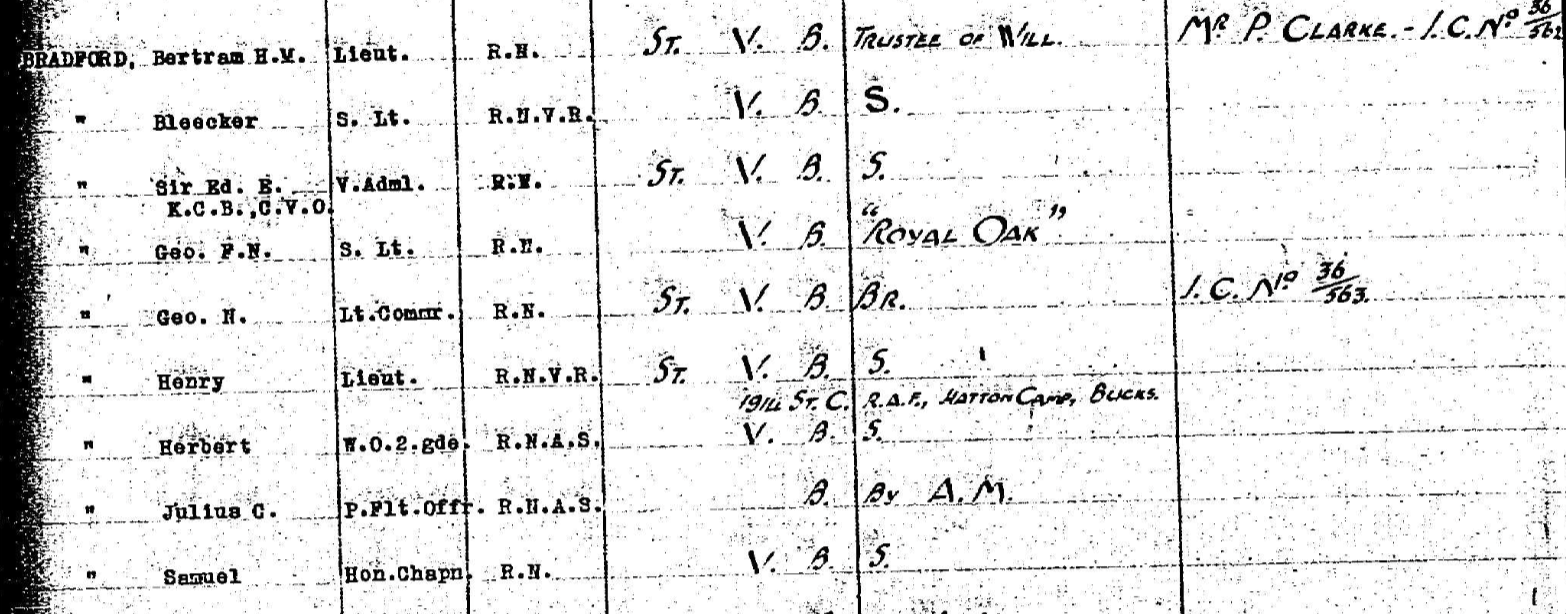 BRADFORD, Bertram H.M. Lieut. R.N. ST. V. B. TRUSTEE OF WILL. MR P. CLARKE. - I.C. No 36/562
" Bleecker S. Lt. R.N.V.R. V. B. S.
" Sir Ed. E. V.Adml. R.N. ST. V. B. S.
K.C.B.,C.V.O.
" Geo. F.N. S. Lt. R.N. V. B. "ROYAL OAK"
" Geo. N. Lt.Commr. R.N. ST. V. B. BR. I.C. No 36/563.
" Henry Lieut. R.N.V.R. ST. V. B. S.
1914 ST. C. R.A.F., HATTON CAMP, BUCKS.
" Herbert W.O.2.gde. R.N.A.S. V. B. S.
" Julius C. P.Flt.Offr. R.N.A.S. B. BY A.M.
" Samuel Hon.Chapn. R.N. V. B. S.